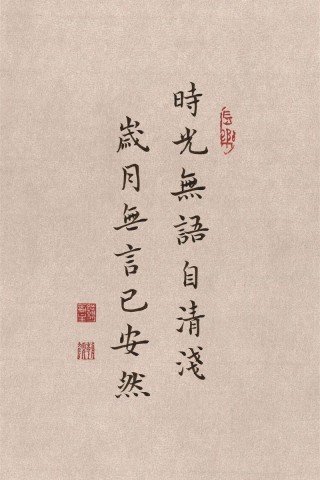 時光無語自清淺
歲月無言已安然